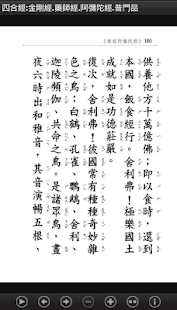 四合經:金剛經.藥師經.阿彌陀經.普門品
《佛說阿彌陀經》
供養他方十萬億佛;即以食時,還到
本國,飯食經行。舍利弗!極樂國土
成就如是功德莊嚴。
復次,舍利弗!彼國常有種種奇妙雜
色之鳥:白鶴、孔雀、鸚鵡、舍利、
迦陵頻伽、共命之鳥。是諸眾鳥,晝
夜六時出和雅音,其音演暢五根、